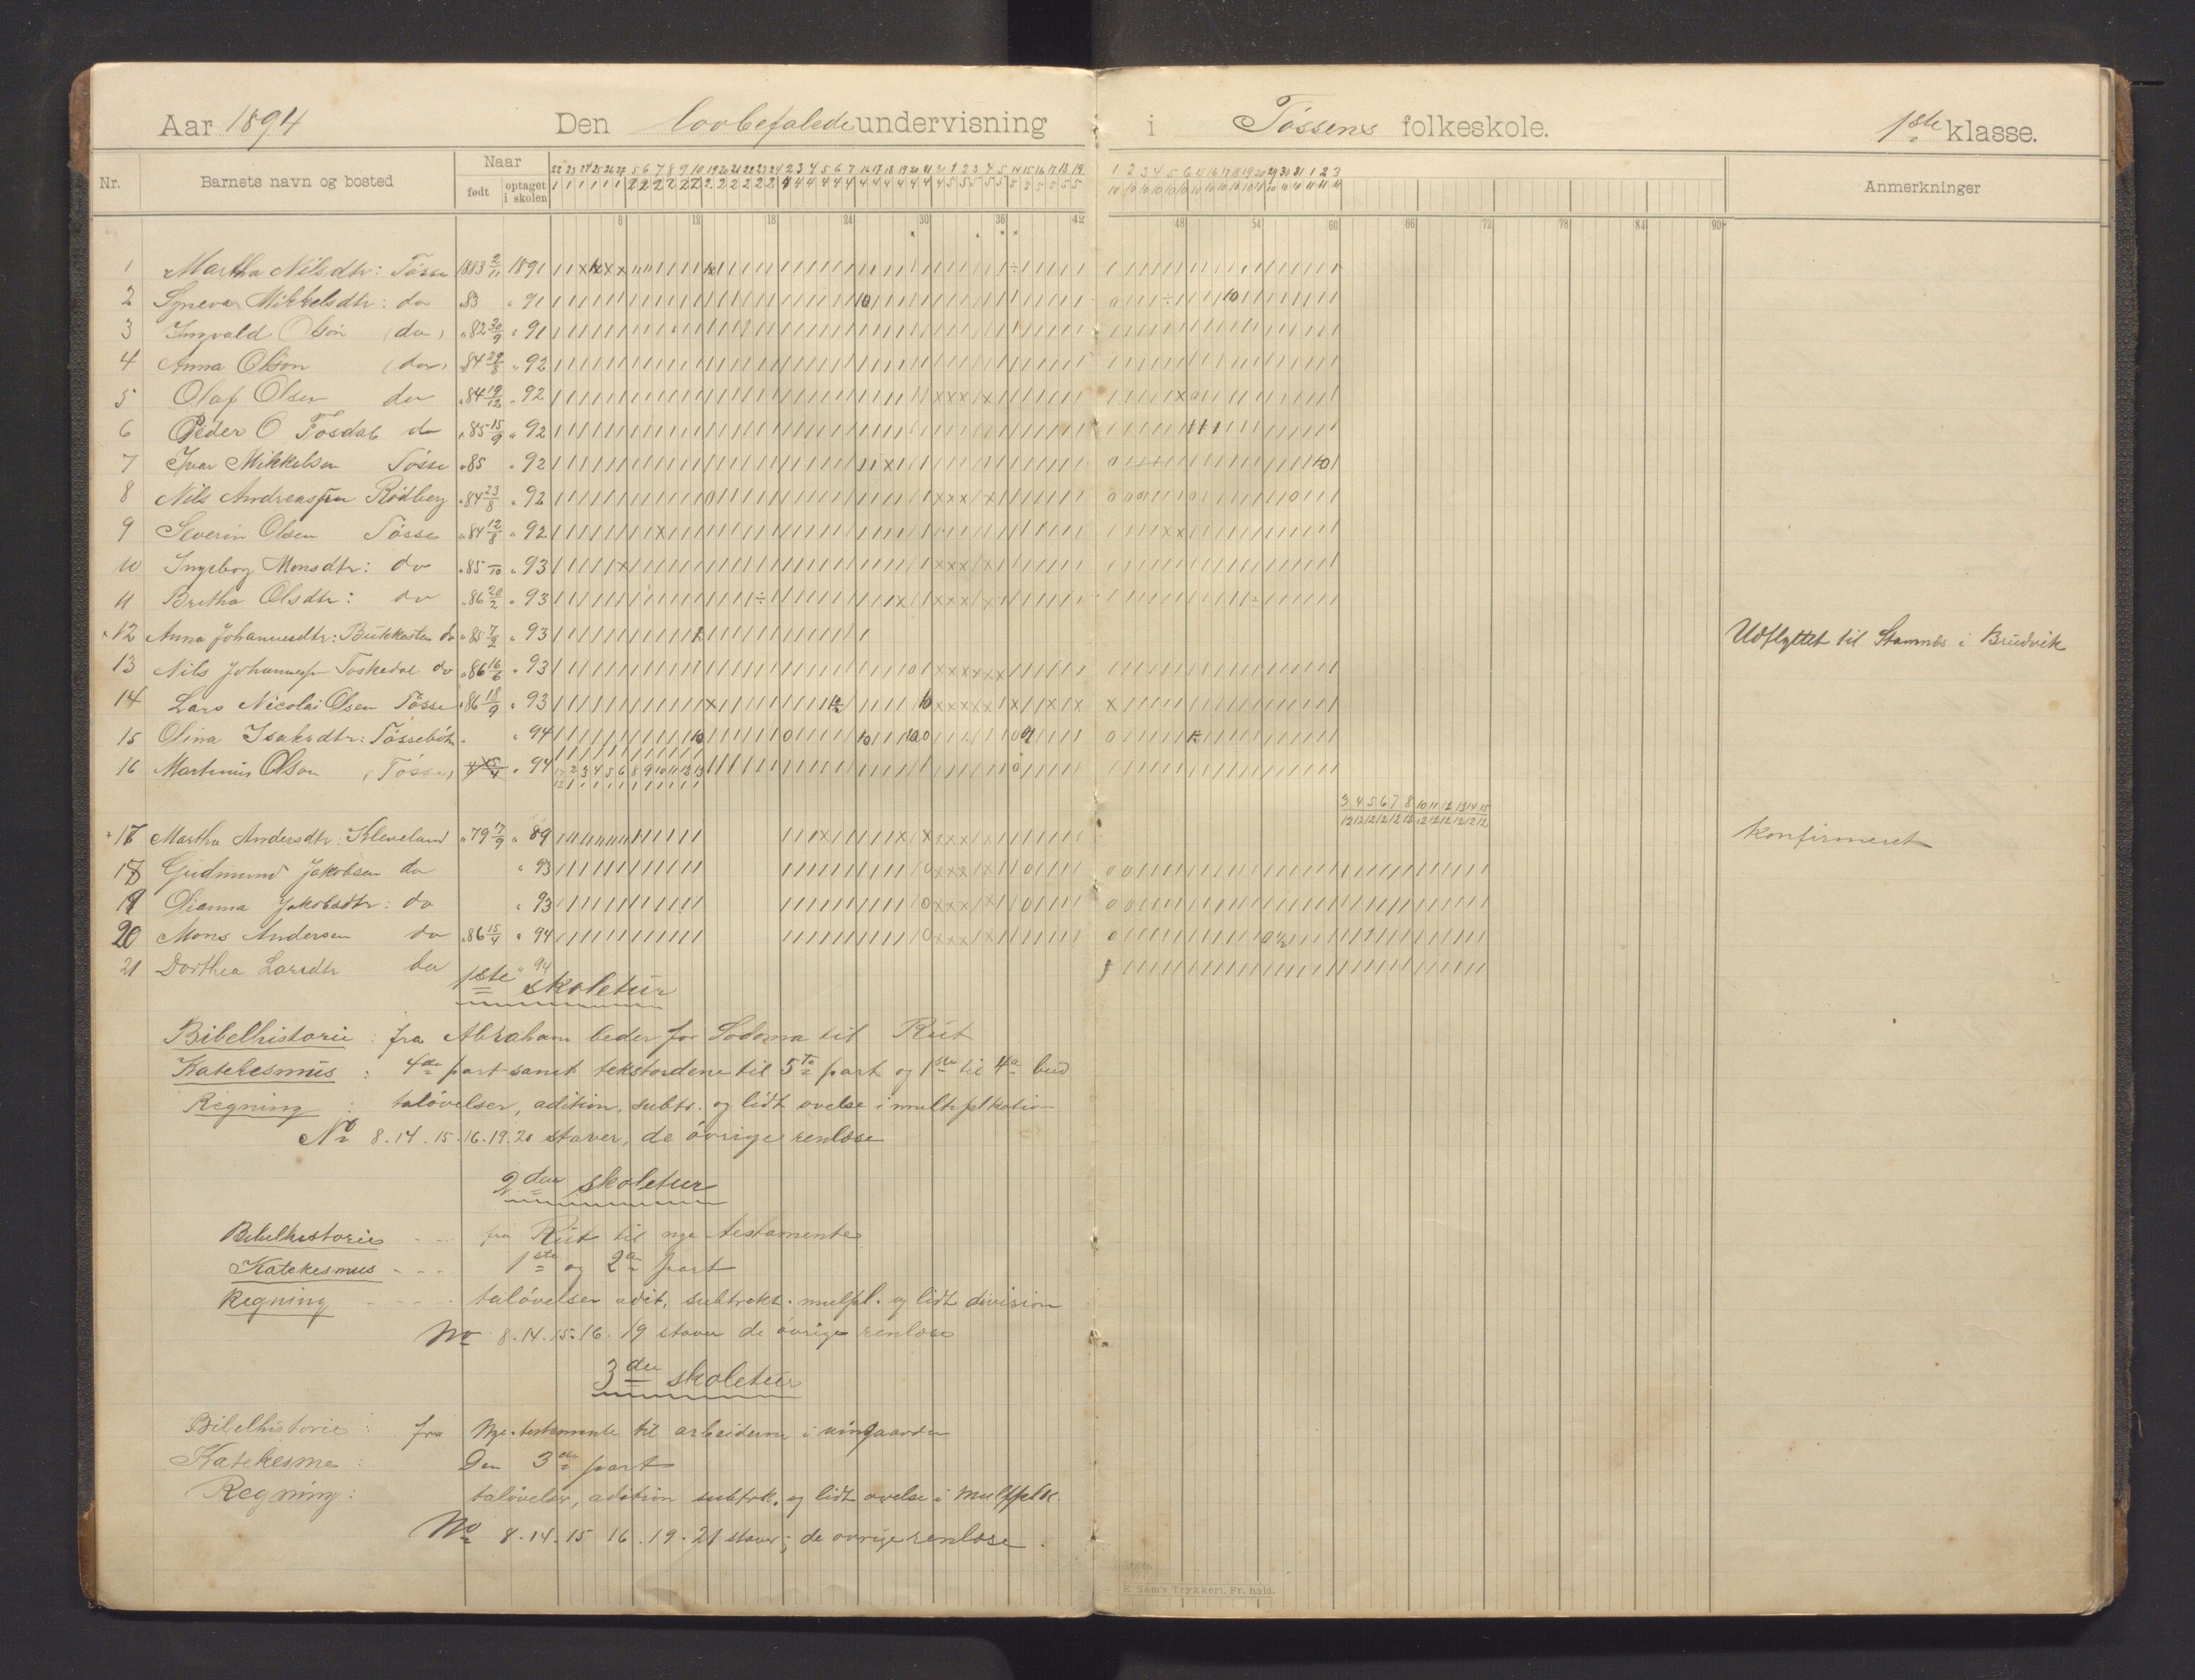 Aar 1894 Den lovbefalede undervisning i Tössens folkeskole. 1ste klasse.
Nr. Barnets navn og bosted Naar født optaget i skolen Anmerkninger
22 23 24 25 26 27 5 6 7 8 9 10 19 20 21 22 23 24 2 3 4 5 6 7 16 17 18 19 20 21 21 1 2 3 4 5 14 15 16 17 18 19 1 2 3 4 5 6 15 16 17 18 19 20 29 30 31 1 2 3
6 12 18 24 30 36 42 48 54 60 66 72 78 84 90
1 Martha Nilsdtr: Tösse 1883 2/11 1891
2 Syneva Mikkelsdtr: do " 83 " 91
3 Ingvald Olson (do) " 82 30/9 " 91
4 Anna Olson (do) " 84 29/8 " 92
5 Olaf Olsen do " 84 19/12 " 92
6 Peder O Fosdal do " 85 15/9 " 92
7 Ivar Mikkelsen Tösse " 85 " 92
8 Nils Andreassen Rödberg " 84 23/8 " 92
9 Severin Olsen Tösse " 84 12/8 " 92
10 Ingeborg Monsdtr: do " 85 /10 " 93
11 Bretha Olsdtr: do " 86 20/2 " 93
+12 Anna Johannesdtr: do " 85 7/2 " 93 Udflyttet til Stamnes i Brudvik
13 Nils Johannessen Toskedal do " 86 16/6 " 93
14 Lars Nicolai Olsen Tösse " 86 18/9 " 93
15 Olina Isaksdtr: " 94
16 Martinus Olson (Tösse) " 94
3 4 5 6 7 8 10 11 12 13 14 15
12 12 12 12 12 12 12 12 12 12 12 12
+17 Martha Andersdtr: Kleveland " 79 17/9 " 89 Konfirmeret
18 Gudmund Jakobsen do " 93
19 Dianna Jakobsdtr: do " 93
20 Mons Andersen do " 86 15/4 " 94
21 Dorthea Larsdtr do " 94
1ste skoletur
Bibelhistorie : fra Abraham beder for Sodoma til Rut
Katekesmus : 4de part samt tekstordene til 5te part og 1ste til 4de bud
Regning : taløvelser, adition, subtr. og lidt øvelse i multiplkation
No 8.14.15.16.19.20 staver, de øvrige renlæse
2den skoletur
Bibelhistorie - - - fra Rut til nye testamente
Katekesmus - - - 1ste og 2den part
Regning - - - - taløvelser adit, subtrakt. mulpl. og lidt division
No 8.14.15.16.19 staver de øvrige renlæse
3die skoletur
Bibelhistorie : fra Nye-testamente til arbeiderne i vingaarden
Katekesme : Den 3die part
Regning : taløvelser, adition subtrk. og lidt øvelse i Mulplk.
No 8.14.15 16.19.21 staver; de øvrige renlæse.
E. Sem's Trykkeri, Fr. hald.